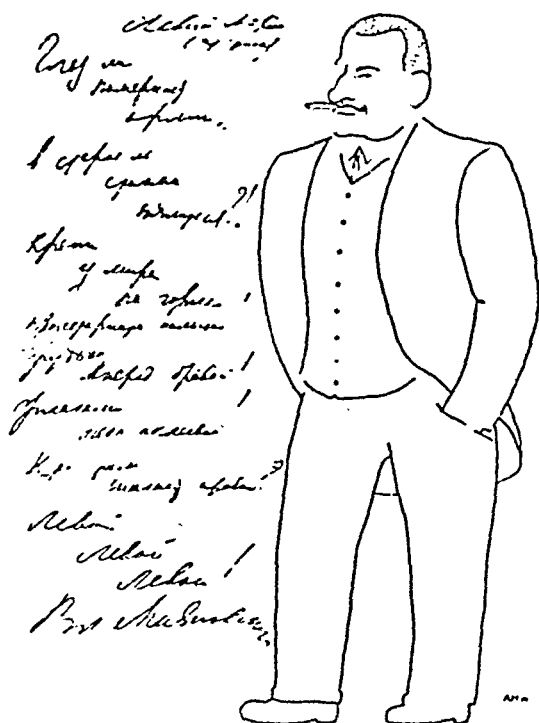 Левый
Глаз ли
померкнет
орлий
В старое ль
станем
пялиться?!
Крепи
у мира
на горле!
пролетариата пальцы
Грудью
вперед бравой!
Флагами !
небо оклеивай
Кто там
шагает правой?
Левой
Левой
Левой!
Вл Маяковский